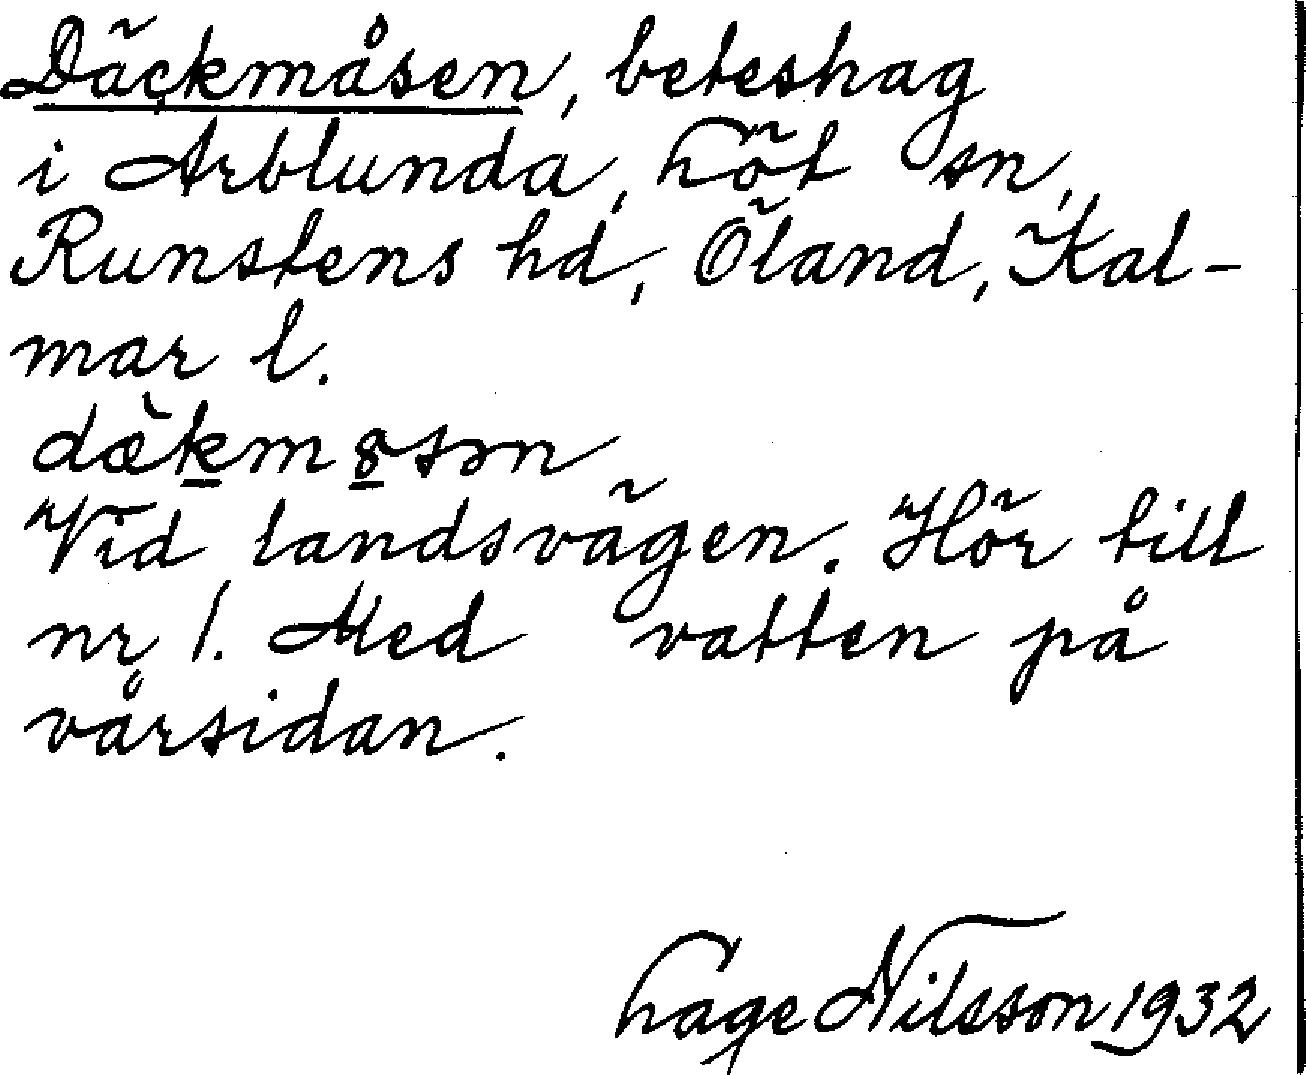 Däckmåsen, beteshag
i Arblunda, Löt sn,
Runstens hd, Öland, Kal-
mar l.
dækm sən
Vid landsvägen. Hör till
nr 1. Med vatten på
vårsidan.
Lage Nilsson 1932